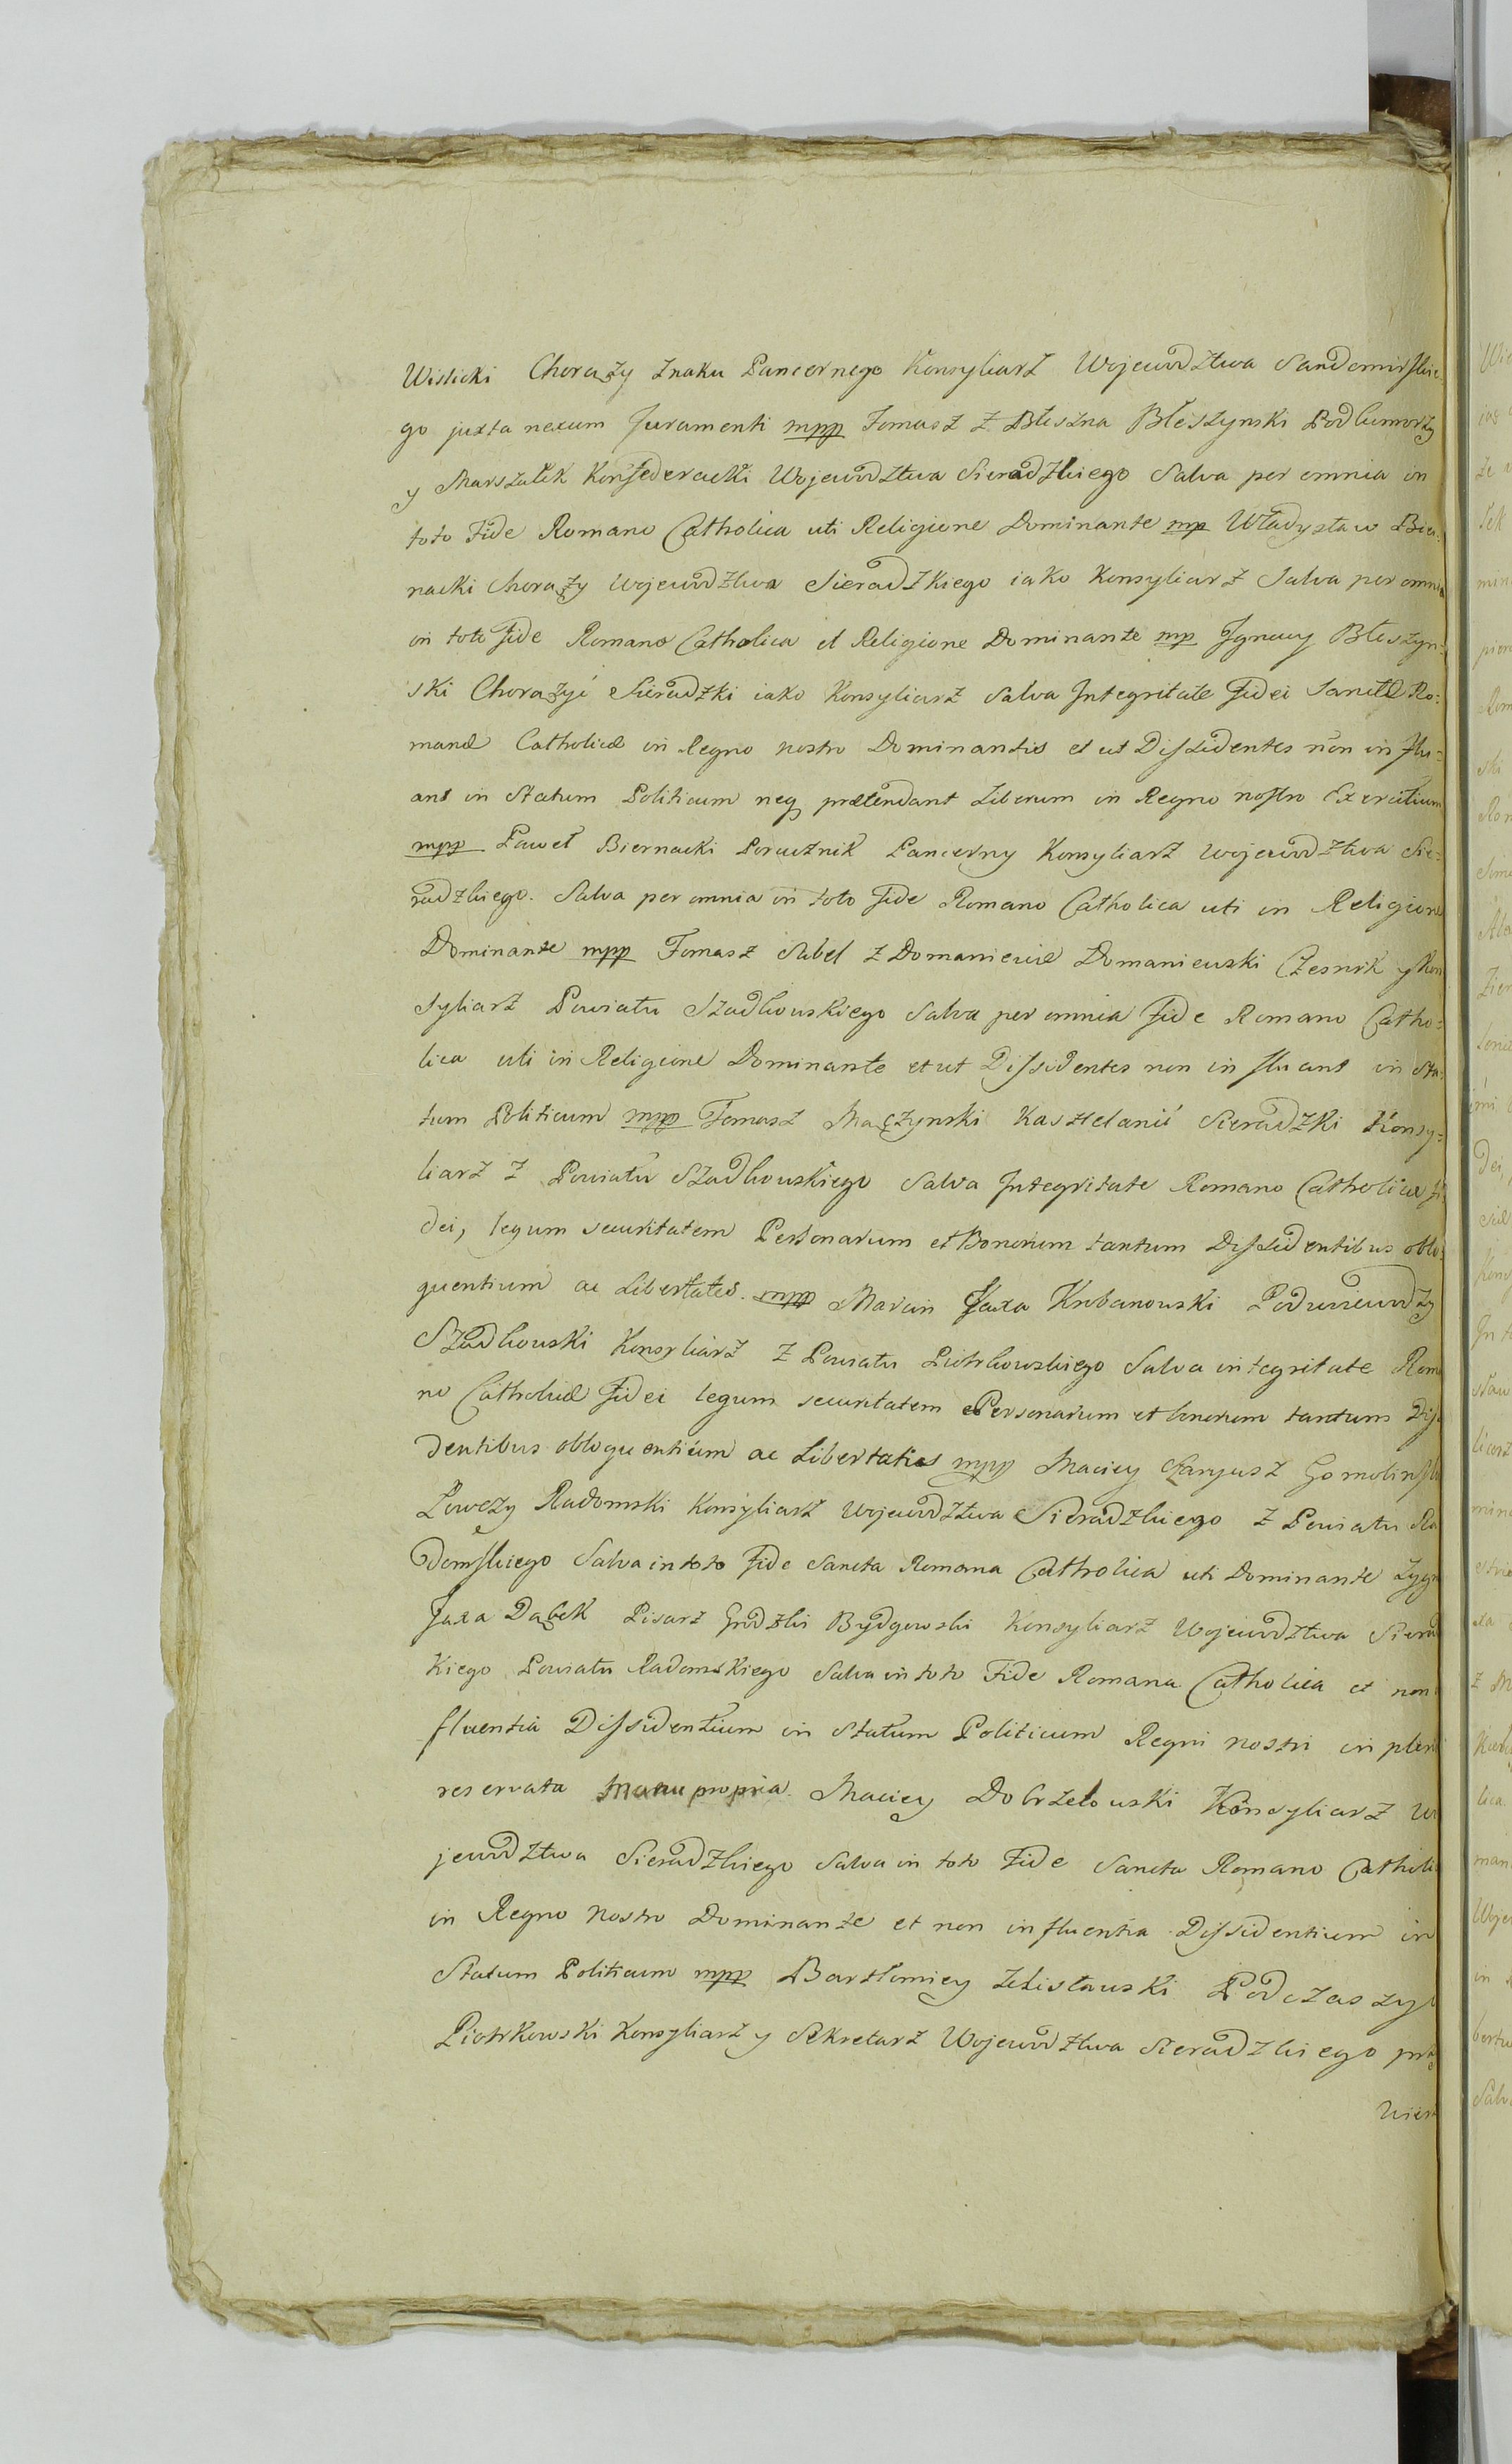 Wislicki Chorąży Znaku Pancernego Konsyliarz Wojewodztwa Sandomirskie:
go juxta nexum Juramenti mpp Tomasz z Błeszna Błeszynski Podkomorzy
y Marszałek Konfederacki Wojewodztwa Sieradzkiego Salva per omnia in
toto Fide Romano Catholica uti Religione Dominante mp Władysław Bier:
nacki Chorąży Wojewodztwa Sieradzkiego iako Konsyliarz Salva per omnia
in toto Fide Romano Catholica et Religione Dominante mp Jgnacy Błeszyn:
ski Chorążyć Sieradzki iako Konsyliarz Salva Jntegritate Fidei Sanctæ Ro:
manæ Catholicæ in Regno nostro Dominantis et ut Dissidentes non in flu=
ant in Statum Politicum neq prætendant Liberum in Regno nostro Exercitium
mpp Paweł Biernacki Porucznik Pancerny Konsyliarz Wojewodztwa Sie:
radzkiego. Salva per omnia in toto Fide Romano Catholica uti in Religione
Dominante mpp Tomasz Sabel z Domaniewic Domaniewski Czesnik y Kon
syliarz Powiatu Szadkowskiego Salva per omnia Fide Romano Catho:
lica uti in Religione Dominante et ut Dissidentes non in fluant in Sta:
tum Politicum mpp Tomasz Mączynski Kasztelanić Sieradzki Konsy:
liarz z Powiatu Szadkowskiego Salva Jntegritate Romano Catholicæ fi
dei, legum securitatem Personarum et Bonorum tantum Dissidentibus oblo:
quentium ac Libertates. mpp Marcin Jaxa Kobanowski Podwiewodzy
Szadkowski Konsyliarz z Powiatu Piotrkowskiego Salva integritate Roma
no Catholicæ Fidei legum securitatem Personarum et bonorum tantum Diss
dentibus obloquentium ac Libertaties mpp Maciey Jaryusz Gomolinsk
Łowczy Radomski Konsyliarz Wojewodztwa Sieradzkiego z Powiatu Ra
domskiego Salva in toto Fide Sancta Romana Catholica uti Dominante Zyg
Jaxa Dąbek Pisarz Grodzki Bydgowski Konsyliarz Wojewodztwa Sierad
kiego Powiatu Radomskiego Salva in toto Fide Romana Catholica et non
fluentia Dissidentium in Statum Politicum Regni nostri in pleni
reservata Manu propria. Maciey Dobrzelowski Konsyliarz Wo
jewodztwa Sieradzkiego Salva in toto Fide Sancta Romano Catholi
in Regno Nostro Dominante et non influentia Dissidentium in
Statum Politicum mpp Bartłomiey Zelisławski Podczaszy
Piotrkowski Konsyliarz y Sekretarz Wojewodztwa Sieradzkiego prze
wien